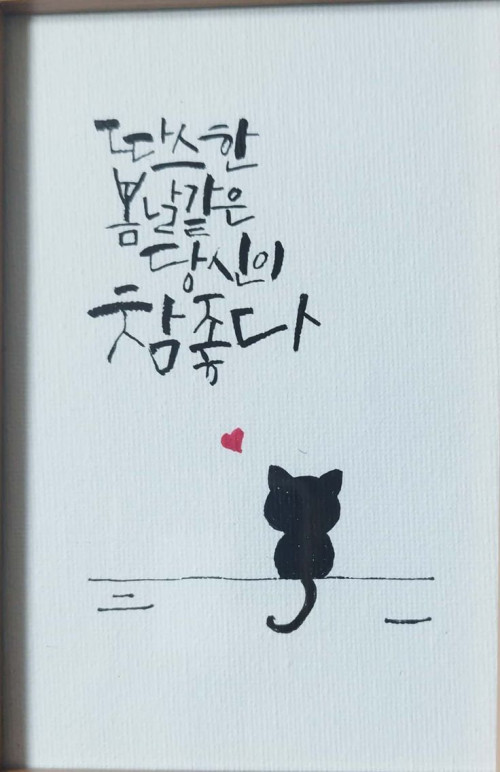 따스한
봄날같은
당신이
참좋다